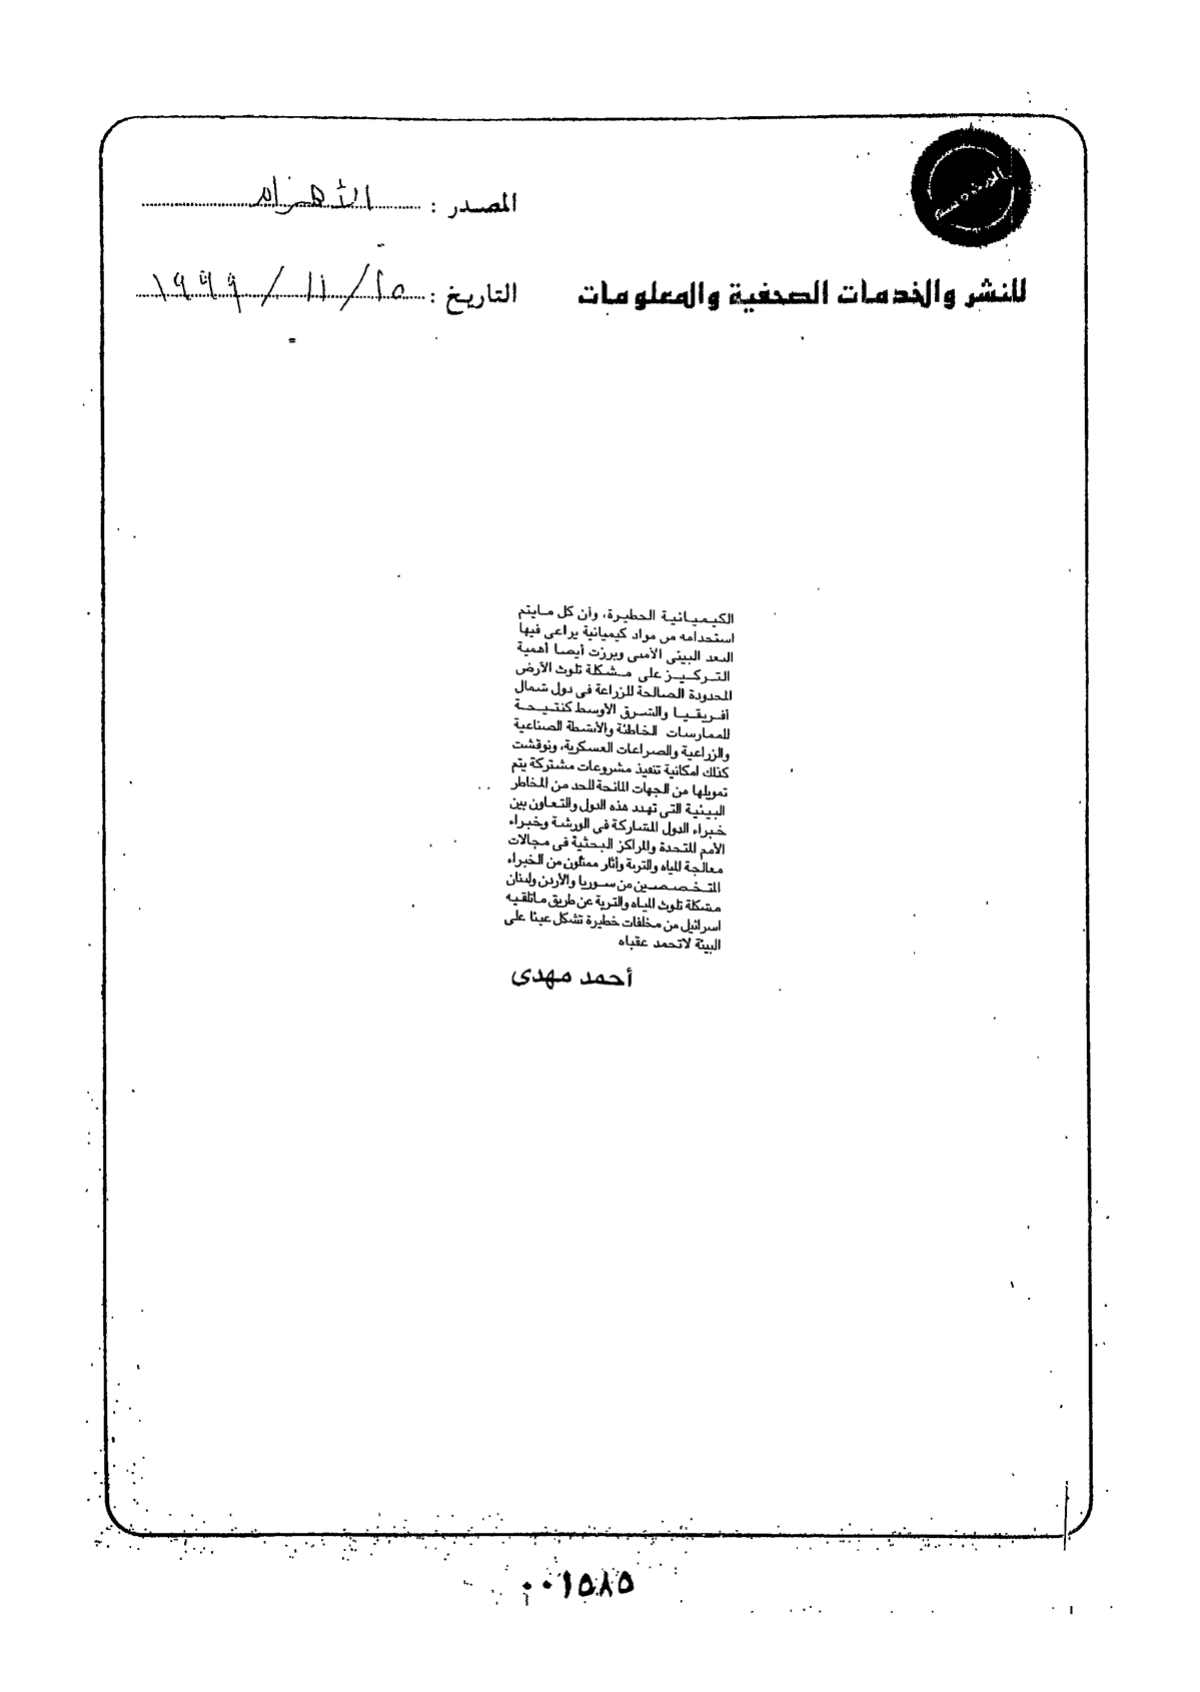 المصدر : الأهرام
للنشر والخدمات الصحفية والمعلومات
التاريخ : ٢٥ / ١١ / ١٩٩٩
الكيميائية الخطيرة، وأن كل مايتم
استخدامه من مواد كيميائية يراعى فيها
البعد البيئى الأمنى وبرزت أيضا أهمية
التركيز على مشكلة تلوث الأرض
المحدودة الصالحة للزراعة فى دول شمال
أفريقيا والشرق الأوسط كنتيجة
للممارسات الخاطئة والأنشطة الصناعية
والزراعية والصراعات العسكرية، ونوقشت
كذلك امكانية تنفيذ مشروعات مشتركة يتم
تمويلها من الجهات المانحة للحد من المخاطر
البيئية التى تهدد هذه الدول والتعاون بين
خبراء الدول المشاركة فى الورشة وخبراء
الأمم المتحدة والمراكز البحثية فى مجالات
معالجة المياه والتربة وأثار ممثلون من الخبراء
المتخصصين من سوريا والأردن ولبنان
مشكلة تلوث المياه والتربة عن طريق ماتلقيه
اسرائيل من مخلفات خطيرة تشكل عبئا على
البيئة لاتحمد عقباه
أحمد مهدى
٠٠١٥٨٥